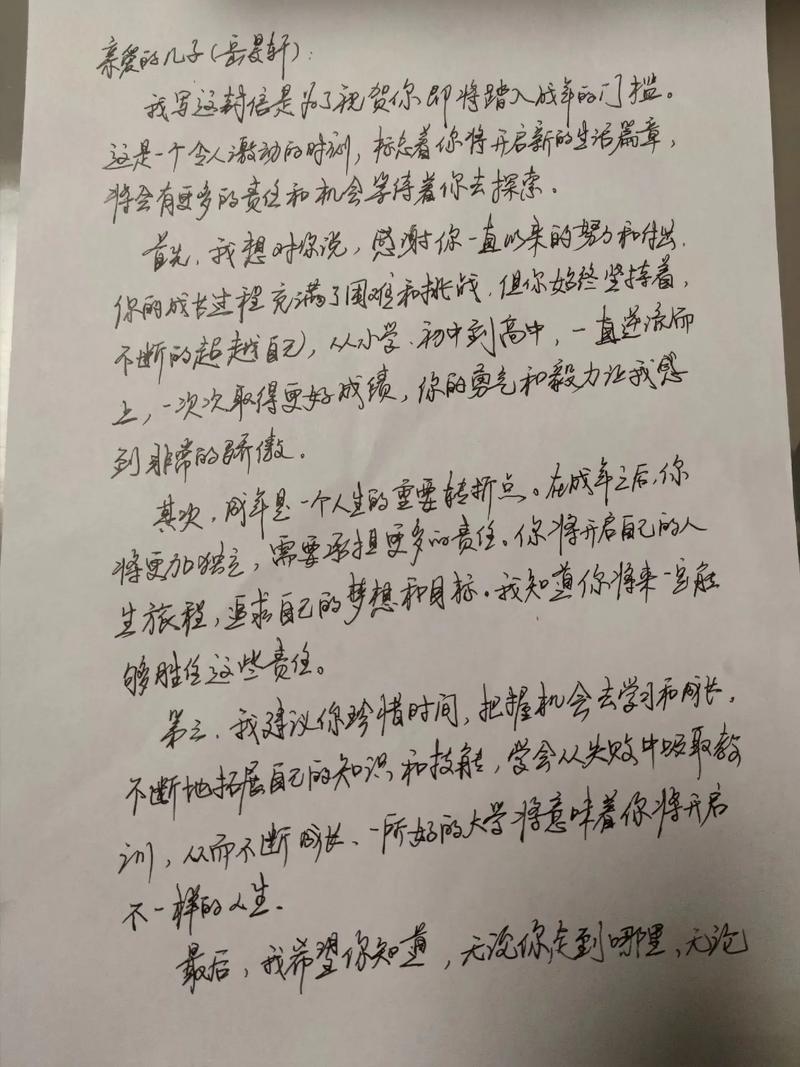 亲爱的儿子(岳昊轩):
我写这封信是为了祝贺你即将踏入成年的门槛。
这是一个令人激动的时刻,标志着你将开启新的生活篇章,
将会有更多的责任和机会等待着你去探索。
首先,我想对你说,感谢你一直以来的努力和付出.
你的成长过程充满了困难和挑战.但你始终坚持着,
不断的超越自己,从小学.初中到高中,一直逆流而
上,一次次取得更好成绩,你的勇气和毅力让我感
到非常的骄傲。
其次,成年是一个人生的重要转折点。在成年之后,你
将更加独立,需要承担更多的责任。你将开启自己的人
生旅程,追求自己的梦想和目标。我知道你将来一定能
够胜任这些责任。
第三.我建议你珍惜时间,把握机会去学习和成长.
不断地拓展自己的知识和技能,学会从失败中吸取教
训,从而不断成长、一所好的大学将意味着你将开启
不一样的人生.
最后,我希望你知道,无论你走到哪里,无论